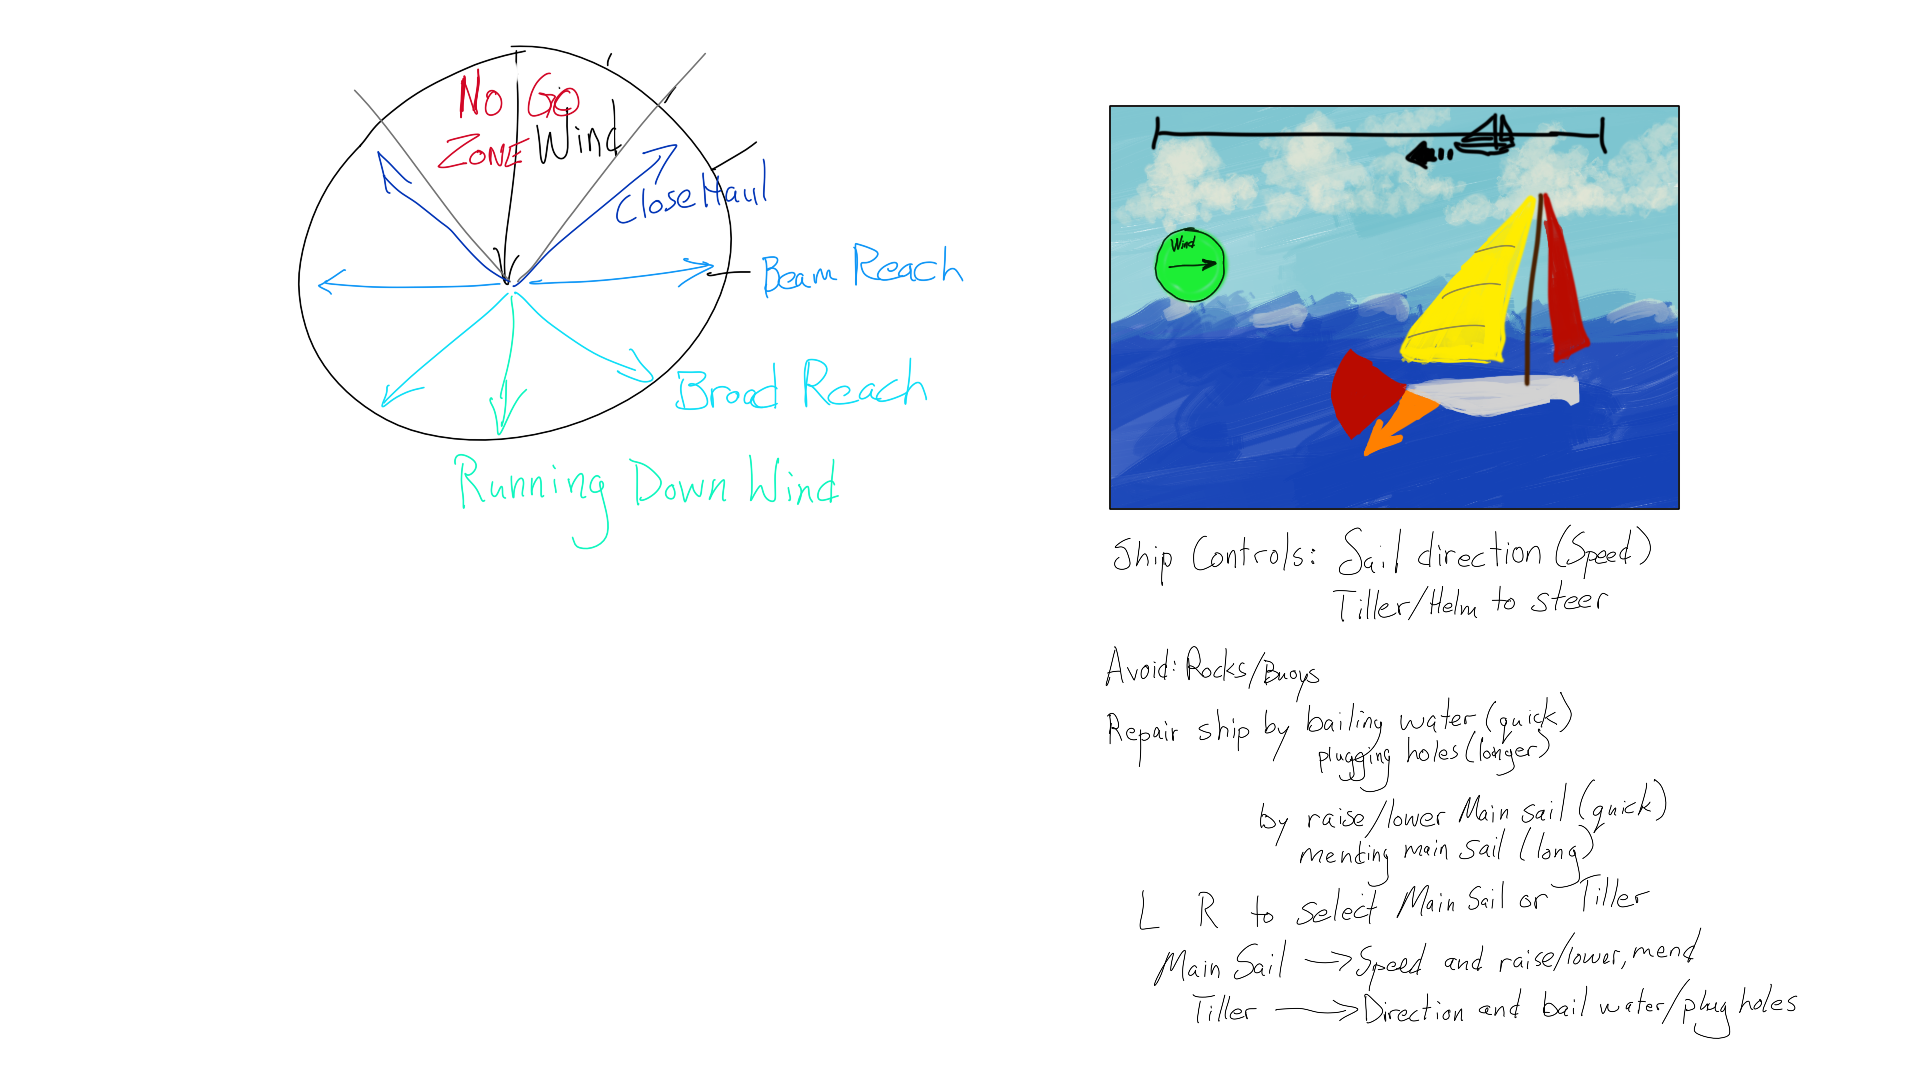 No Go
Zone Wind
Close Haul
Beam Reach
Broad Reach
Running Down Wind
Wind
Ship Controls: Sail direction (Speed)
Tiller/Helm to steer
Avoid: Rocks/Buoys
Repair ship by bailing water (quick)
plugging holes (longer)
by raise/lower Main sail (quick)
mending main sail (long)
L R to select Main Sail or Tiller
Main Sail → Speed and raise/lower, mend
Tiller → Direction and bail water/plug holes